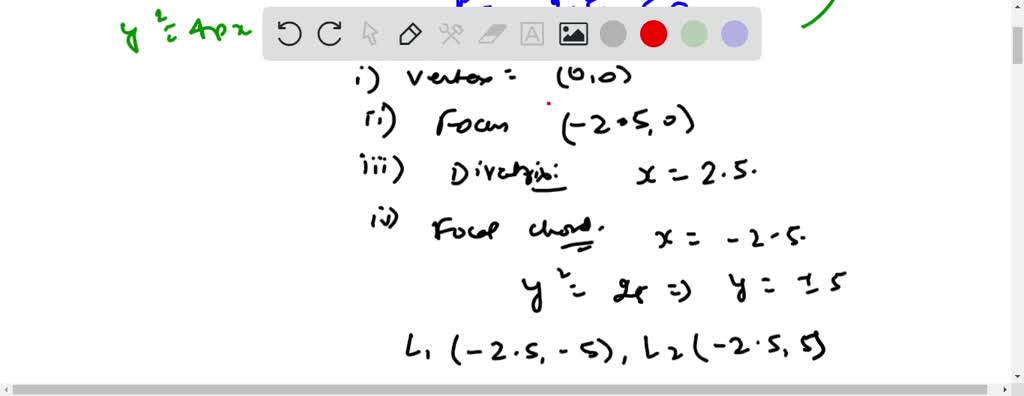 y² = 4px
i) Vertex = (0,0)
ii) Focus (-2.5, 0)
iii) Diratrix: x = 2.5.
iv) Focal chord. x = -2.5.
y² = 25 => y = ±5
L₁ (-2.5, -5), L₂ (-2.5, 5)